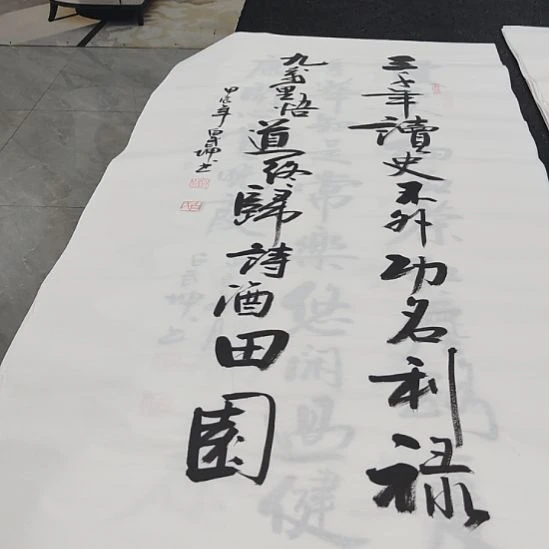 三千年讀史不外功名利禄
九萬里悟道終歸詩酒田園
甲辰年